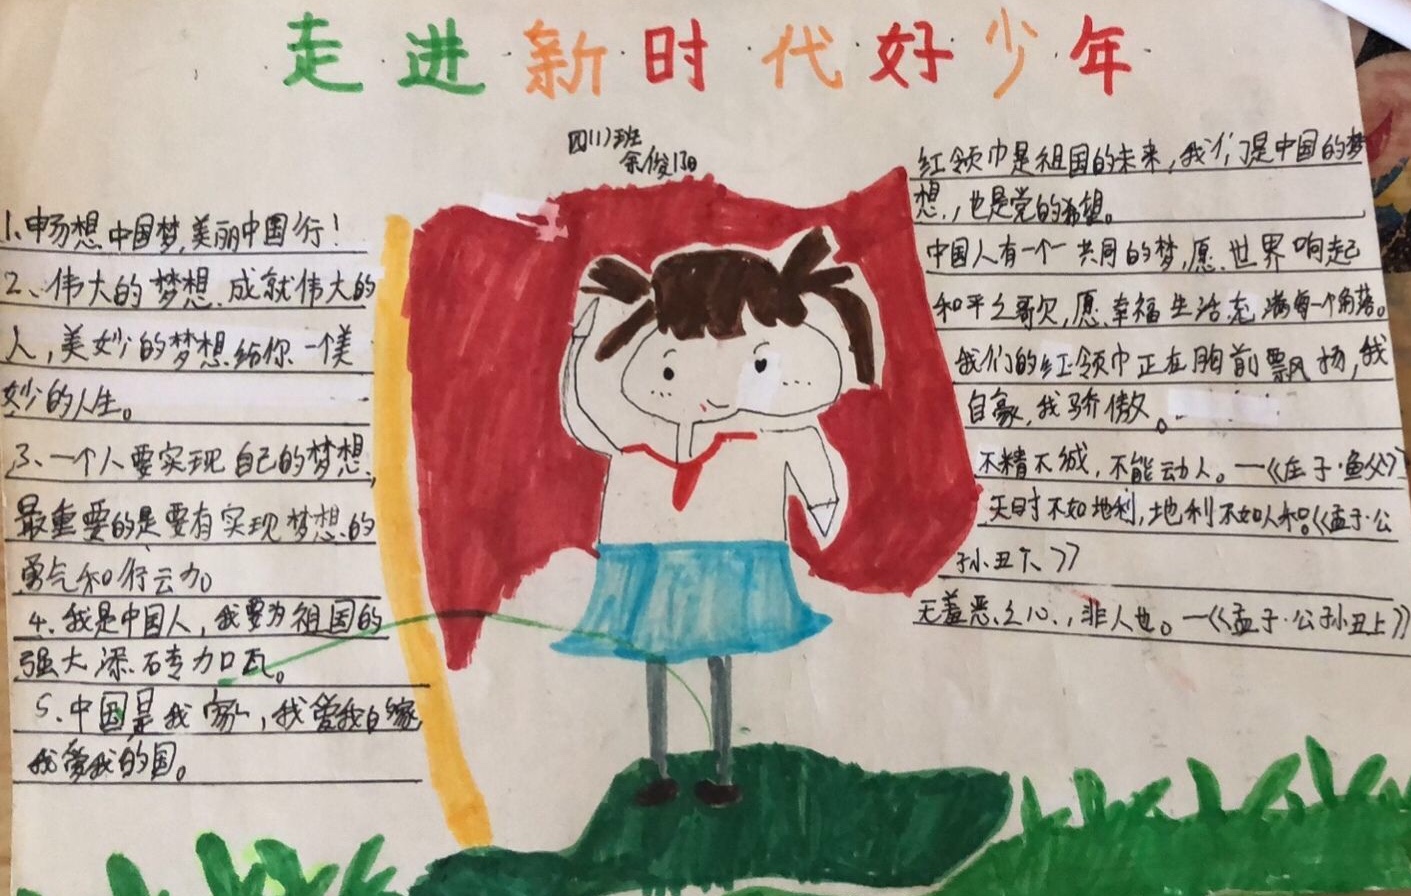 走进新时代好少年
四(1)班
余俊
1、畅想中国梦,美丽中国行!
2、伟大的梦想,成就伟大的
人,美妙的梦想给你一个美
妙的人生。
3、一个人要实现自己的梦想,
最重要的是要有实现梦想的
勇气和行动。
4、我是中国人,我要为祖国的
强大添砖加瓦。
5、中国是我家,我爱我的家
我爱我的国。
红领巾是祖国的未来,我们是中国的梦
想,也是党的希望。
中国人有一个共同的梦,愿世界响起
和平之歌,愿幸福生活充满每一个角落。
我们的红领巾正在胸前飘扬,我
自豪,我骄傲。
不精不诚,不能动人。—《庄子·鱼父》
天时不如地利,地利不如人和。《孟子·公
孙丑下》
无羞恶之心,非人也。—《孟子·公孙丑上》